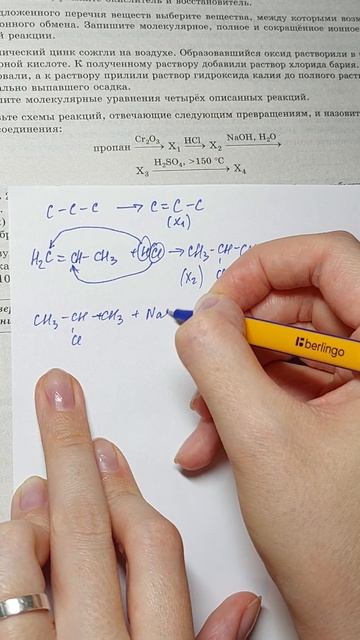 окислитель и восстановитель.
дложенного перечня веществ выберите вещества, между которыми
онного обмена. Запишите молекулярное, полное и сокращённое ионное
й реакции.
ический цинк сожгли на воздухе. Образовавшийся оксид растворили в
рной кислоте. К полученному раствору добавили раствор хлорида бария.
овали, а к раствору прилили раствор гидроксида калия до полного раст
ально выпавшего осадка.
ите молекулярные уравнения четырёх описанных реакций.
ьте схемы реакций, отвечающие следующим превращениям, и назовит
соединения:
Cr₂O₃ HCl NaOH, H₂O
пропан → X₁ → X₂ →
H₂SO₄, >150 °C
X₃ → X₄
C - C - C → C = C - C
(X₁)
H₂C = CH - CH₃ + HCl → CH₃ - CH - CH
(X₂) Cl
CH₃ - CH - CH₃ + Na
Cl
berlingo